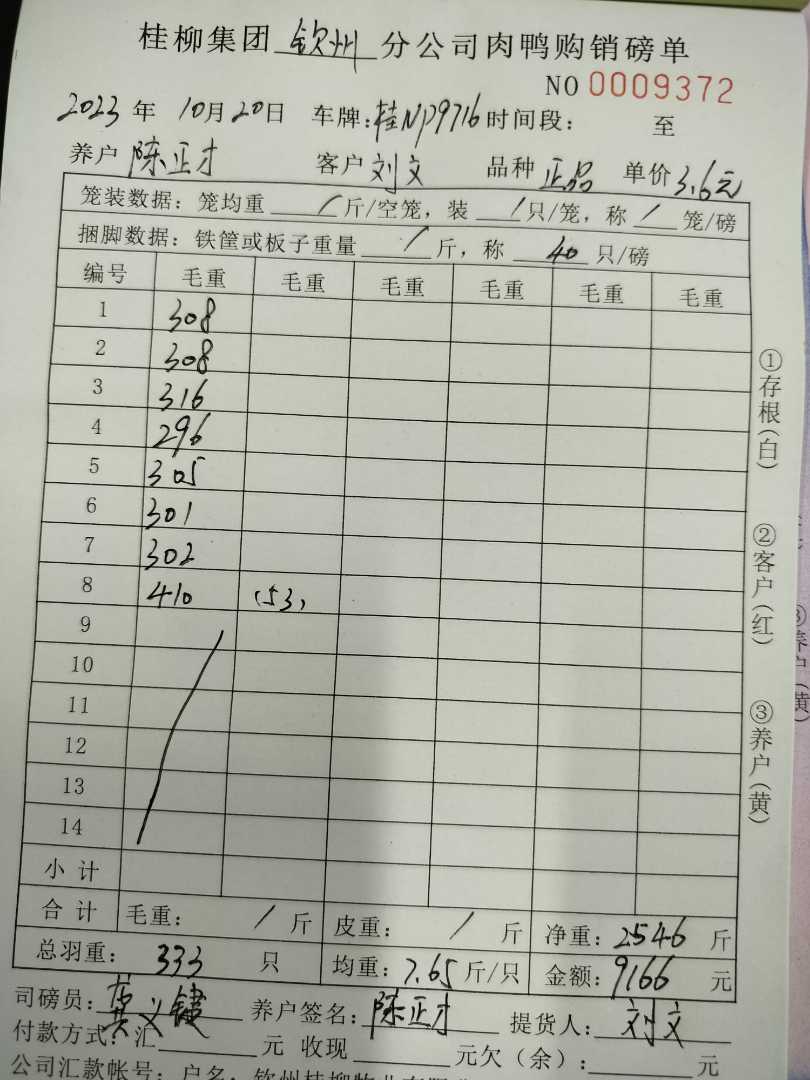 桂柳集团 钦州 分公司肉鸭购销磅单
NO 0009372
2023 年 10月20日 车牌:桂NP9716 时间段: 至
养户 陈正才 客户 刘文 品种 正品 单价 3.6元
笼装数据:笼均重 / 斤/空笼,装 / 只/笼,称 / 笼/磅
捆脚数据:铁筐或板子重量 / 斤,称 40 只/磅
编号 毛重 毛重 毛重 毛重 毛重 毛重
1 308
2 308
3 316
4 296
5 305
6 301
7 302
8 410 (53)
9
10
11
12
13
14
小计
合计 毛重: / 斤 皮重: / 斤 净重:2546 斤
总羽重: 333 只 均重:7.65 斤/只 金额:9166 元
司磅员: 养户签名:陈正才 提货人:刘文
付款方式:汇 元 收现 元欠(余): 元
公司汇款帐号:户名:钦州桂柳牧业有限
①存根(白)
②客户(红)
③养户(黄)
③养户(黄)